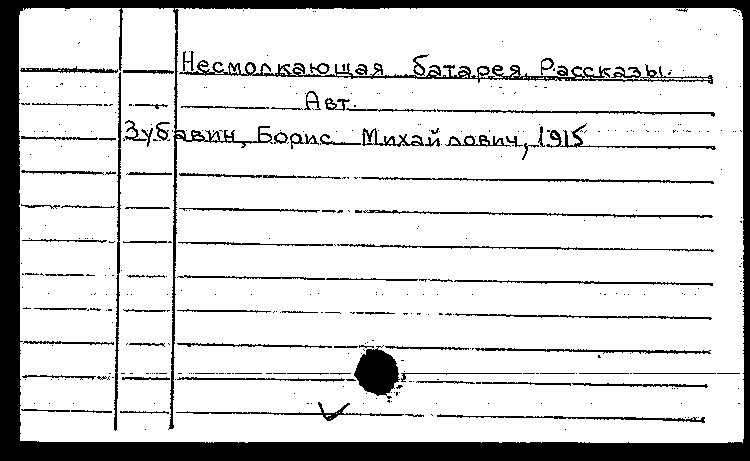 Несмолкающая батарея. Рассказы.
Авт.
Зубавин, Борис Михайлович, 1915